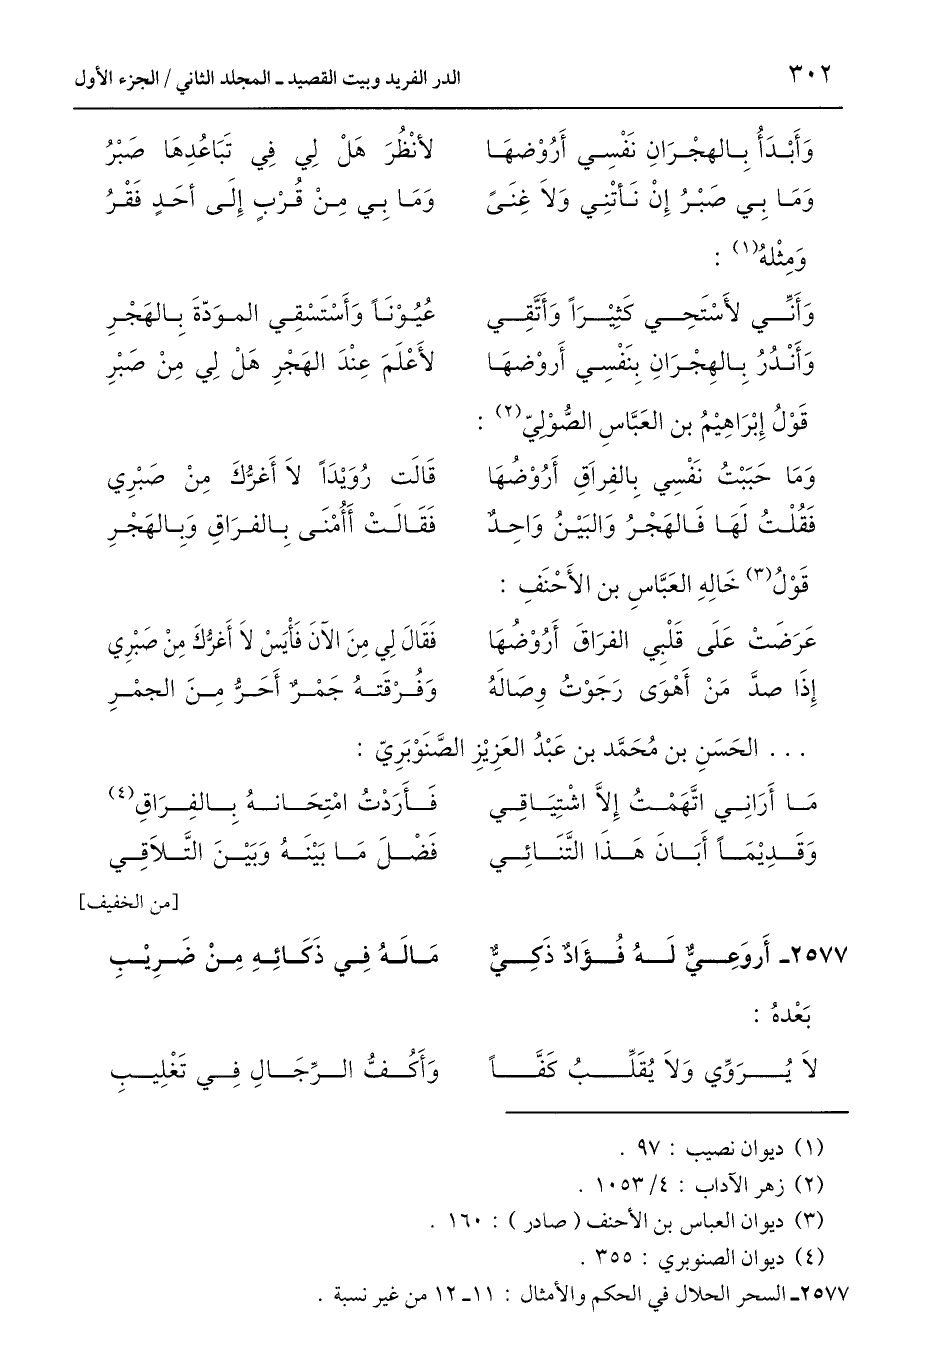 ٣٠٢ الدر الفريد وبيت القصيد ـ المجلد الثاني / الجزء الأول
وَأَبْدَأُ بِالهِجْرَانِ نَفْسِي أَرُوْضهَا لأَنْظُرَ هَلْ لِي فِي تَبَاعُدِهَا صَبْرُ
وَمَا بِي صَبْرُ إِنْ نَأتْنِي وَلاَ غِنَىً وَمَا بِي مِنْ قُرْبٍ إِلَى أحَدٍ فَقْرُ
وَمِثْلهُ(١) :
وَأنِّي لأَسْتَحِي كَثِيْراً وَأَتَّقِي عُيُوْنَاً وَأَسْتَسْقِي المودّةَ بِالهَجْرِ
وَأَنْدُرُ بِالهِجْرَانِ بِنَفْسِي أروْضهَا لأَعْلَمَ عِنْدَ الهَجْرِ هَلْ لِي مِنْ صَبْرِ
قَوْلُ إِبْرَاهِيْمُ بن العَبَّاسِ الصُّوْلِيّ(٢) :
وَمَا حَبَبْتُ نَفْسِي بِالفِراقِ أَرُوْضُهَا قَالَت رُوَيْدَاً لاَ أَغرُّكَ مِنْ صَبْرِي
فَقُلْتُ لَهَا فَالهَجْرُ وَالبَيْنُ وَاحِدٌ فَقَالَتْ أَأُمْنَى بِالفرَاقِ وَبِالهَجْرِ
قَوْلُ(٣) خَالِهِ العَبَّاسِ بن الأَحْنَفِ :
عَرَضَتْ عَلَى قَلْبِي الفرَاقَ أَرُوْضُهَا فَقَالَ لِي مِنَ الآنَ فَأْيَسْ لاَ أَغرُّكَ مِنْ صَبْرِي
إِذَا صدَّ مَنْ أَهْوَى رَجَوْتُ وِصَالَهُ وَفُرْقتهُ جَمْرٌ أَحَرُّ مِنَ الجمْرِ
... الحَسَنِ بن مُحَمَّد بن عَبْدُ العَزِيْزِ الصَّنَوْبَرِيّ :
مَا أَرَانِي اتَّهَمْتُ إِلاَّ اشْتِيَاقِي فَأَرَدْتُ امْتِحَانهُ بِالفِرَاقِ(٤)
وَقَدِيْمَاً أَبَانَ هَذَا التَّنَائِي فَضْلَ مَا بَيْنَهُ وَبَيْنَ التَّلاَقِي
[من الخفيف]
٢٥٧٧ـ أَروَعِيٌّ لَهُ فُؤَادٌ ذَكِيٌّ مَالَهُ فِي ذَكَائِهِ مِنْ ضَرِيْبِ
بَعْدهُ :
لاَ يُرَوِّي وَلاَ يُقَلِّبُ كَفَّاً وَأَكُفُّ الرِّجَالِ فِي تَغْلِيبِ
(١) ديوان نصيب : ٩٧ .
(٢) زهر الآداب : ٤/ ١٠٥٣ .
(٣) ديوان العباس بن الأحنف ( صادر ) : ١٦٠ .
(٤) ديوان الصنوبري : ٣٥٥ .
٢٥٧٧ـ السحر الحلال في الحكم والأمثال : ١١ـ ١٢ من غير نسبة .